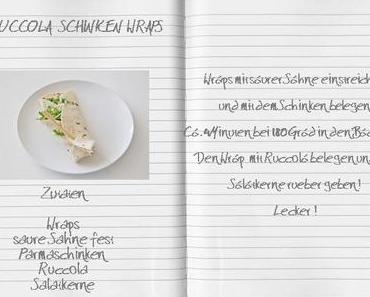 RUCCOLA SCHINKEN WRAPS
Zutaten
Wraps
saure Sahne fest
Parmaschinken
Ruccola
Salatkerne
Wraps mit saurer Sahne einstreich
und mit dem Schinken belegen
Ca. 4 Minuten bei 180 Grad in den Bac
Den Wrap mit Ruccola belegen un
Salatkerne rueber geben!
Lecker!